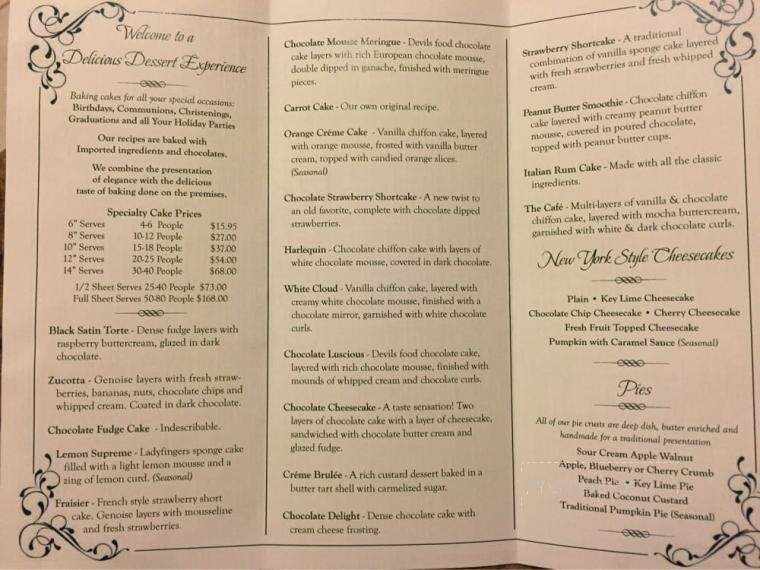 Welcome to a
Delicious Dessert Experience
Baking cakes for all your special occasions:
Birthdays, Communions, Christenings,
Graduations and all Your Holiday Parties
Our recipes are baked with
Imported ingredients and chocolates.
We combine the presentation
of elegance with the delicious
taste of baking done on the premises.
Specialty Cake Prices
6" Serves 4-6 People $15.95
8" Serves 10-12 People $27.00
10" Serves 15-18 People $37.00
12" Serves 20-25 People $54.00
14" Serves 30-40 People $68.00
1/2 Sheet Serves 25-40 People $73.00
Full Sheet Serves 50-80 People $168.00
Black Satin Torte - Dense fudge layers with
raspberry buttercream, glazed in dark
chocolate.
Zucotta - Genoise layers with fresh straw-
berries, bananas, nuts, chocolate chips and
whipped cream. Coated in dark chocolate.
Chocolate Fudge Cake - Indescribable.
Lemon Supreme - Ladyfingers sponge cake
filled with a light lemon mousse and a
zing of lemon curd. (Seasonal)
Fraisier - French style strawberry short
cake. Genoise layers with mousseline
and fresh strawberries.
Chocolate Mousse Meringue - Devils food chocolate
cake layers with rich European chocolate mousse,
double dipped in ganache, finished with meringue
pieces.
Carrot Cake - Our own original recipe.
Orange Créme Cake - Vanilla chiffon cake, layered
with orange mousse, frosted with vanilla butter
cream, topped with candied orange slices.
(Seasonal)
Chocolate Strawberry Shortcake - A new twist to
an old favorite, complete with chocolate dipped
strawberries.
Harlequin - Chocolate chiffon cake with layers of
white chocolate mousse, covered in dark chocolate.
White Cloud - Vanilla chiffon cake, layered with
creamy white chocolate mousse, finished with a
chocolate mirror, garnished with white chocolate
curls.
Chocolate Luscious - Devils food chocolate cake,
layered with rich chocolate mousse, finished with
mounds of whipped cream and chocolate curls.
Chocolate Cheesecake - A taste sensation! Two
layers of chocolate cake with a layer of cheesecake,
sandwiched with chocolate butter cream and
glazed fudge.
Créme Brulée - A rich custard dessert baked in a
butter tart shell with carmelized sugar.
Chocolate Delight - Dense chocolate cake with
cream cheese frosting.
Strawberry Shortcake - A traditional
combination of vanilla sponge cake layered
with fresh strawberries and fresh whipped
cream.
Peanut Butter Smoothie - Chocolate chiffon
cake layered with creamy peanut butter
mousse, covered in poured chocolate,
topped with peanut butter cups.
Italian Rum Cake - Made with all the classic
ingredients.
The Café - Multi-layers of vanilla & chocolate
chiffon cake, layered with mocha buttercream,
garnished with white & dark chocolate curls.
New York Style Cheesecakes
Plain • Key Lime Cheesecake
Chocolate Chip Cheesecake • Cherry Cheesecake
Fresh Fruit Topped Cheesecake
Pumpkin with Caramel Sauce (Seasonal)
Pies
All of our pie crusts are deep dish, butter enriched and
handmade for a traditional presentation
Sour Cream Apple Walnut
Apple, Blueberry or Cherry Crumb
Peach Pie • Key Lime Pie
Baked Coconut Custard
Traditional Pumpkin Pie (Seasonal)